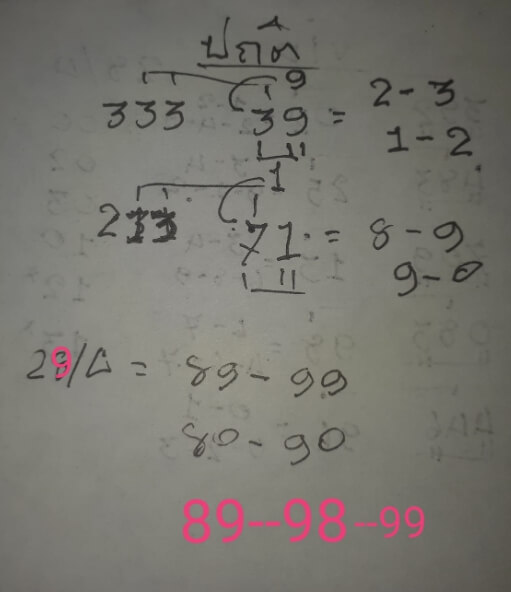 ปถต
9
333 39 = 2-3
1-2
1
71 = 8-9
9-0
29/ = 89-99
80-90
89--98--99